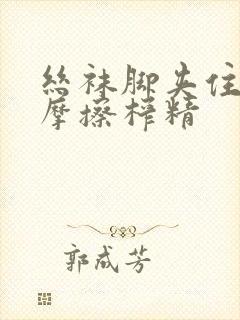 丝袜脚夹住
摩擦榨精
郭成芳